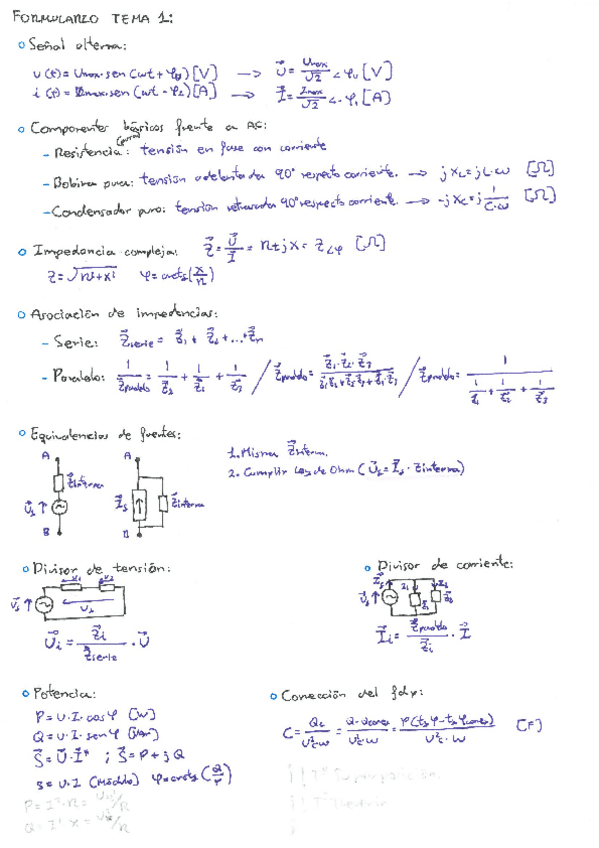 FORMULARIO TEMA 1:
Señal alterna:
u(t) = Umax·sen(ωt + φu) [V] → U⃗ = Umax/√2 ∠φu [V]
i(t) = Imax·sen(ωt - φI) [A] → I⃗ = Imax/√2 ∠-φI [A]
Componentes básicos frente a AC:
- Resistencia: tensión en fase con corriente
- Bobina pura: tensión adelantada 90° respecto corriente. → jXL = jL·ω [Ω]
- Condensador puro: tensión retrasada 90° respecto corriente. → -jXc = j 1/C·ω [Ω]
Impedancia compleja: Z⃗ = U⃗/I⃗ = R + jX = Z∠φ [Ω]
Z = √R²+X² φ = arctg(X/R)
Asociación de impedancias:
- Serie: Z⃗serie = Z⃗1 + Z⃗2 + ... + Z⃗n
- Paralelo: 1/Z⃗paralelo = 1/Z⃗1 + 1/Z⃗2 + 1/Z⃗3 / Z⃗paralelo = Z⃗1·Z⃗2·Z⃗3/Z⃗1·Z⃗2+Z⃗2·Z⃗3+Z⃗1·Z⃗3 / Z⃗paralelo = 1/(1/Z⃗1 + 1/Z⃗2 + 1/Z⃗3)
Equivalencias de fuentes:
1. Misma Z⃗interna.
2. Cumplir Ley de Ohm (U⃗s = I⃗s · Zinterna)
A A
Z⃗interna
U⃗s I⃗s Z⃗interna
B B
Divisor de tensión: Divisor de corriente:
U⃗i = Z⃗i/Z⃗serie · U⃗
I⃗i = Z⃗paralelo/Z⃗i · I⃗
Potencia: Corrección del fdp:
P = U·I·cosφ [W]
Q = U·I·senφ [VAr]
S⃗ = U⃗·I⃗* ; S⃗ = P + jQ
S = U·I (Módulo) φ = arctg(Q/P)
P = I²·R = UR²/R
Q = I²·X =
C = Qc/U²c·ω = Q-Qcorreg/U²c·ω = P(tgφ - tgφcorreg)/U²c·ω [F]